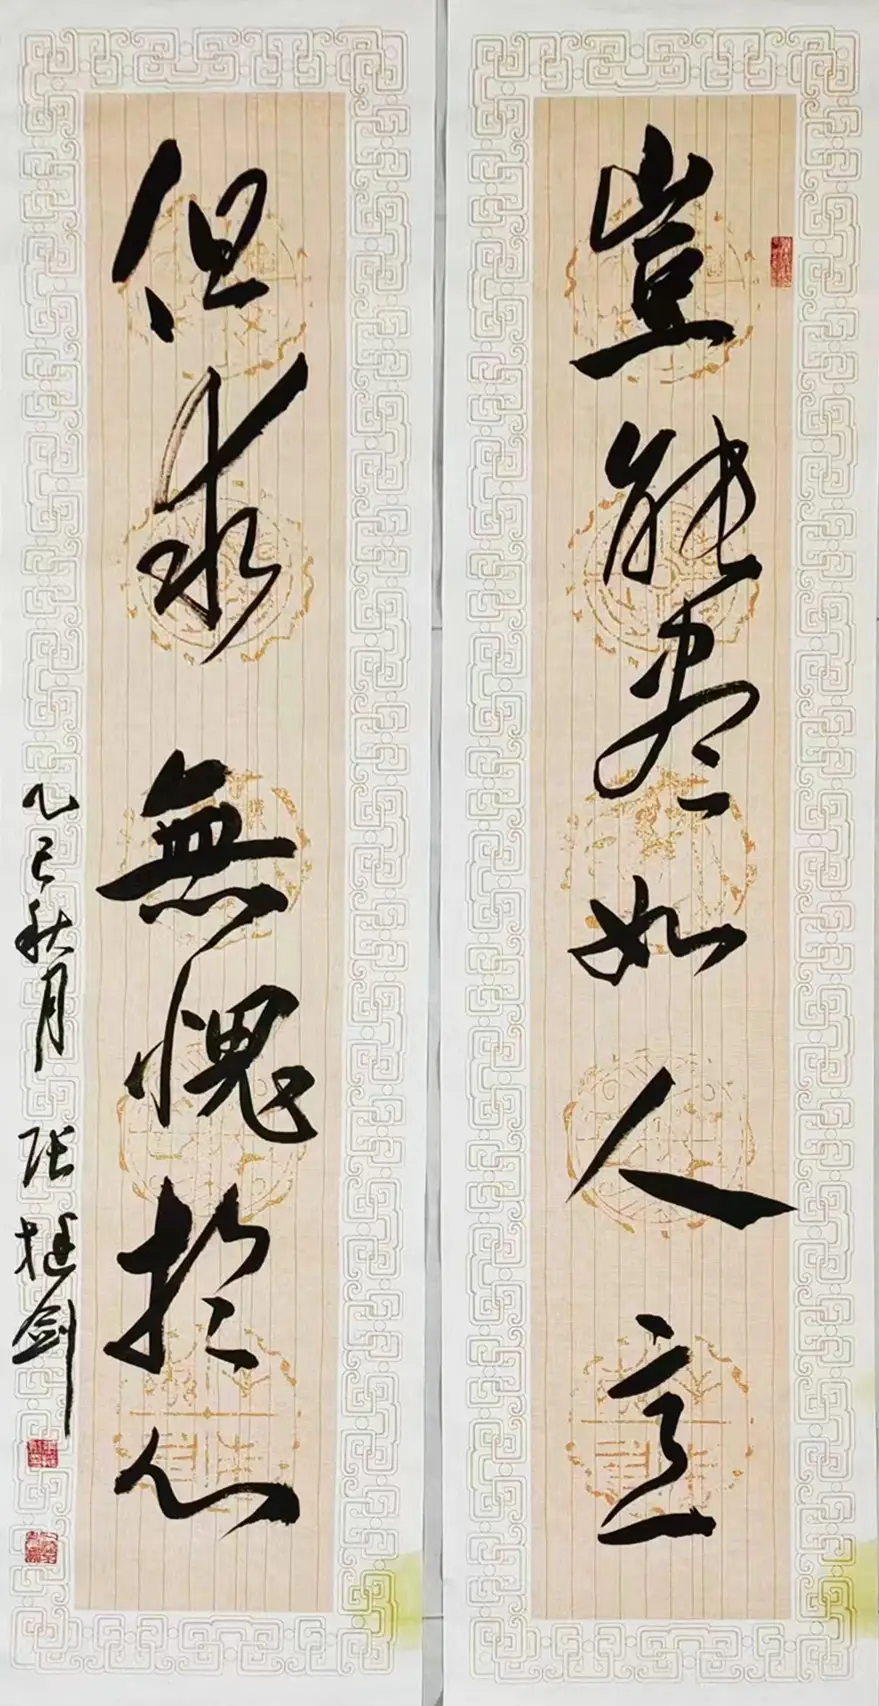 豈能盡如人意
但求無愧於心
乙巳秋月 張挺劍